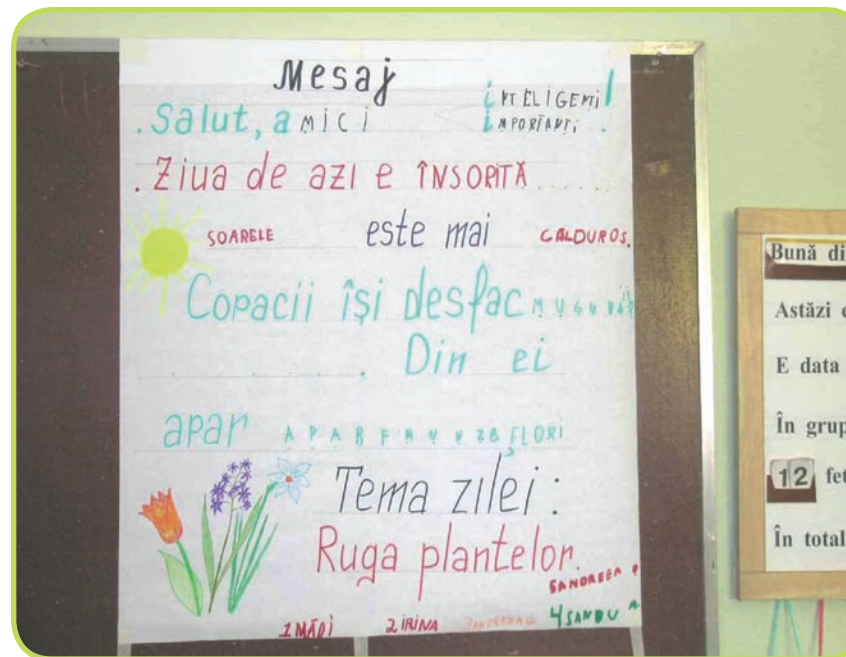 Mesaj
.Salut, aMICI
iNTELIGENȚI!
iMPORTANȚI.
.Ziua de azi e ÎNSORITĂ .....
SOARELE este mai CALDUROS.
Copacii își desfac
. . . . . Din ei
apar APAR FRUNZE, FLORI
Tema zilei:
Ruga plantelor.
SANDREEA
1 MĂDI 2 IRINA 4 SANDU A
Bună di
Astăzi
E data
În grup
12 fet
În total